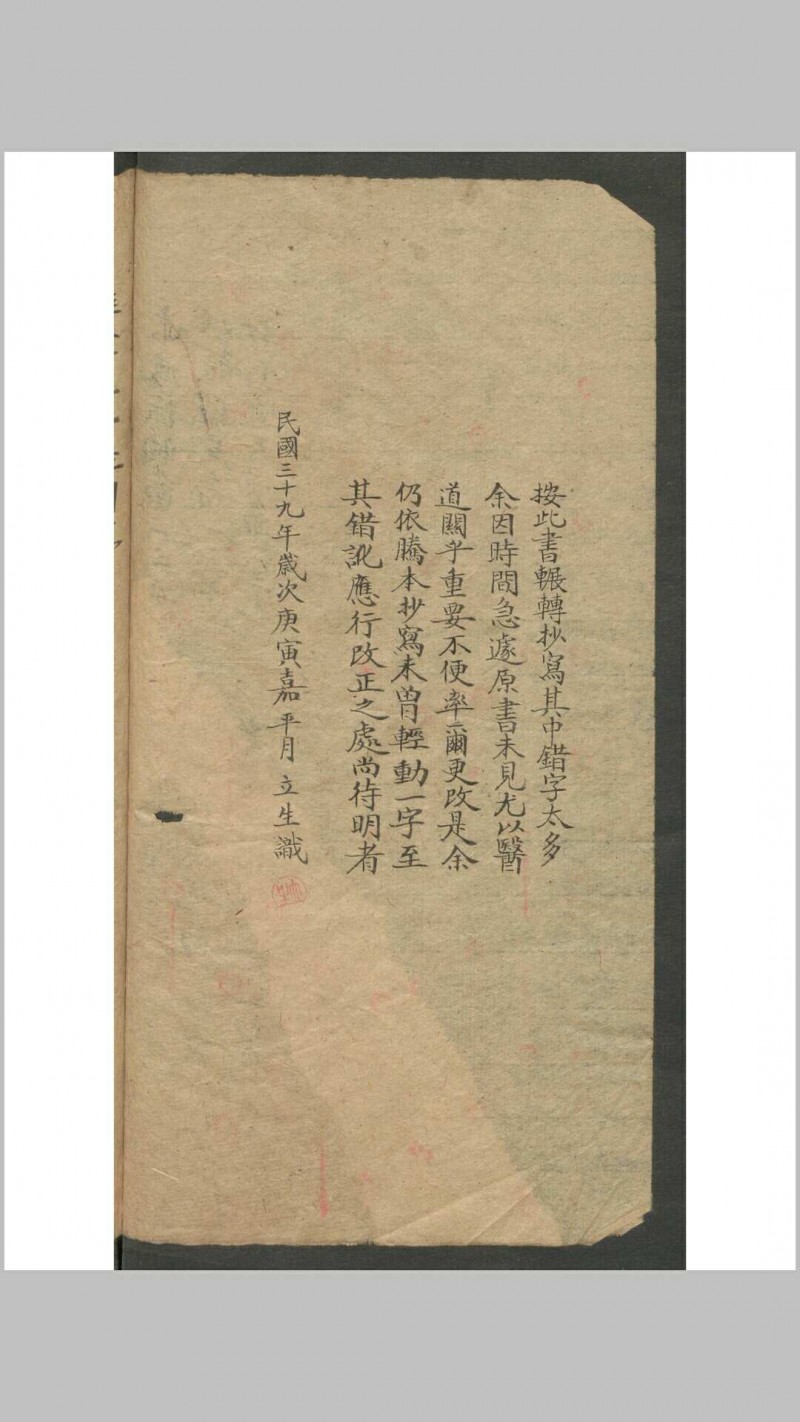 按此書輾轉抄寫其中錯字太多
余因時間急遽原書未見尤以醫
道關乎重要不便率爾更改是余
仍依騰本抄寫未曾輕動一字至
其錯訛應行改正之處尚待明者
民國三十九年歲次庚寅嘉平月立生識